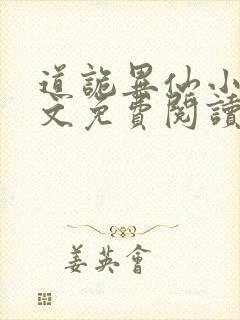 道詭異仙小
文免費閱讀
姜英會